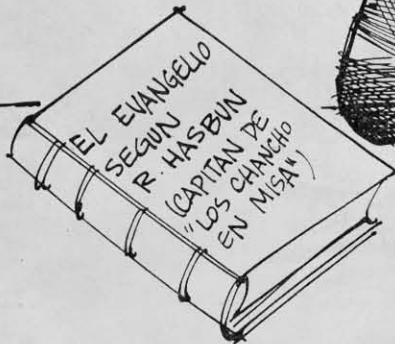 EL EVANGELIO
SEGUN
R. HASBUN
(CAPITAN DE
"LOS CHANCHO
EN MISA")